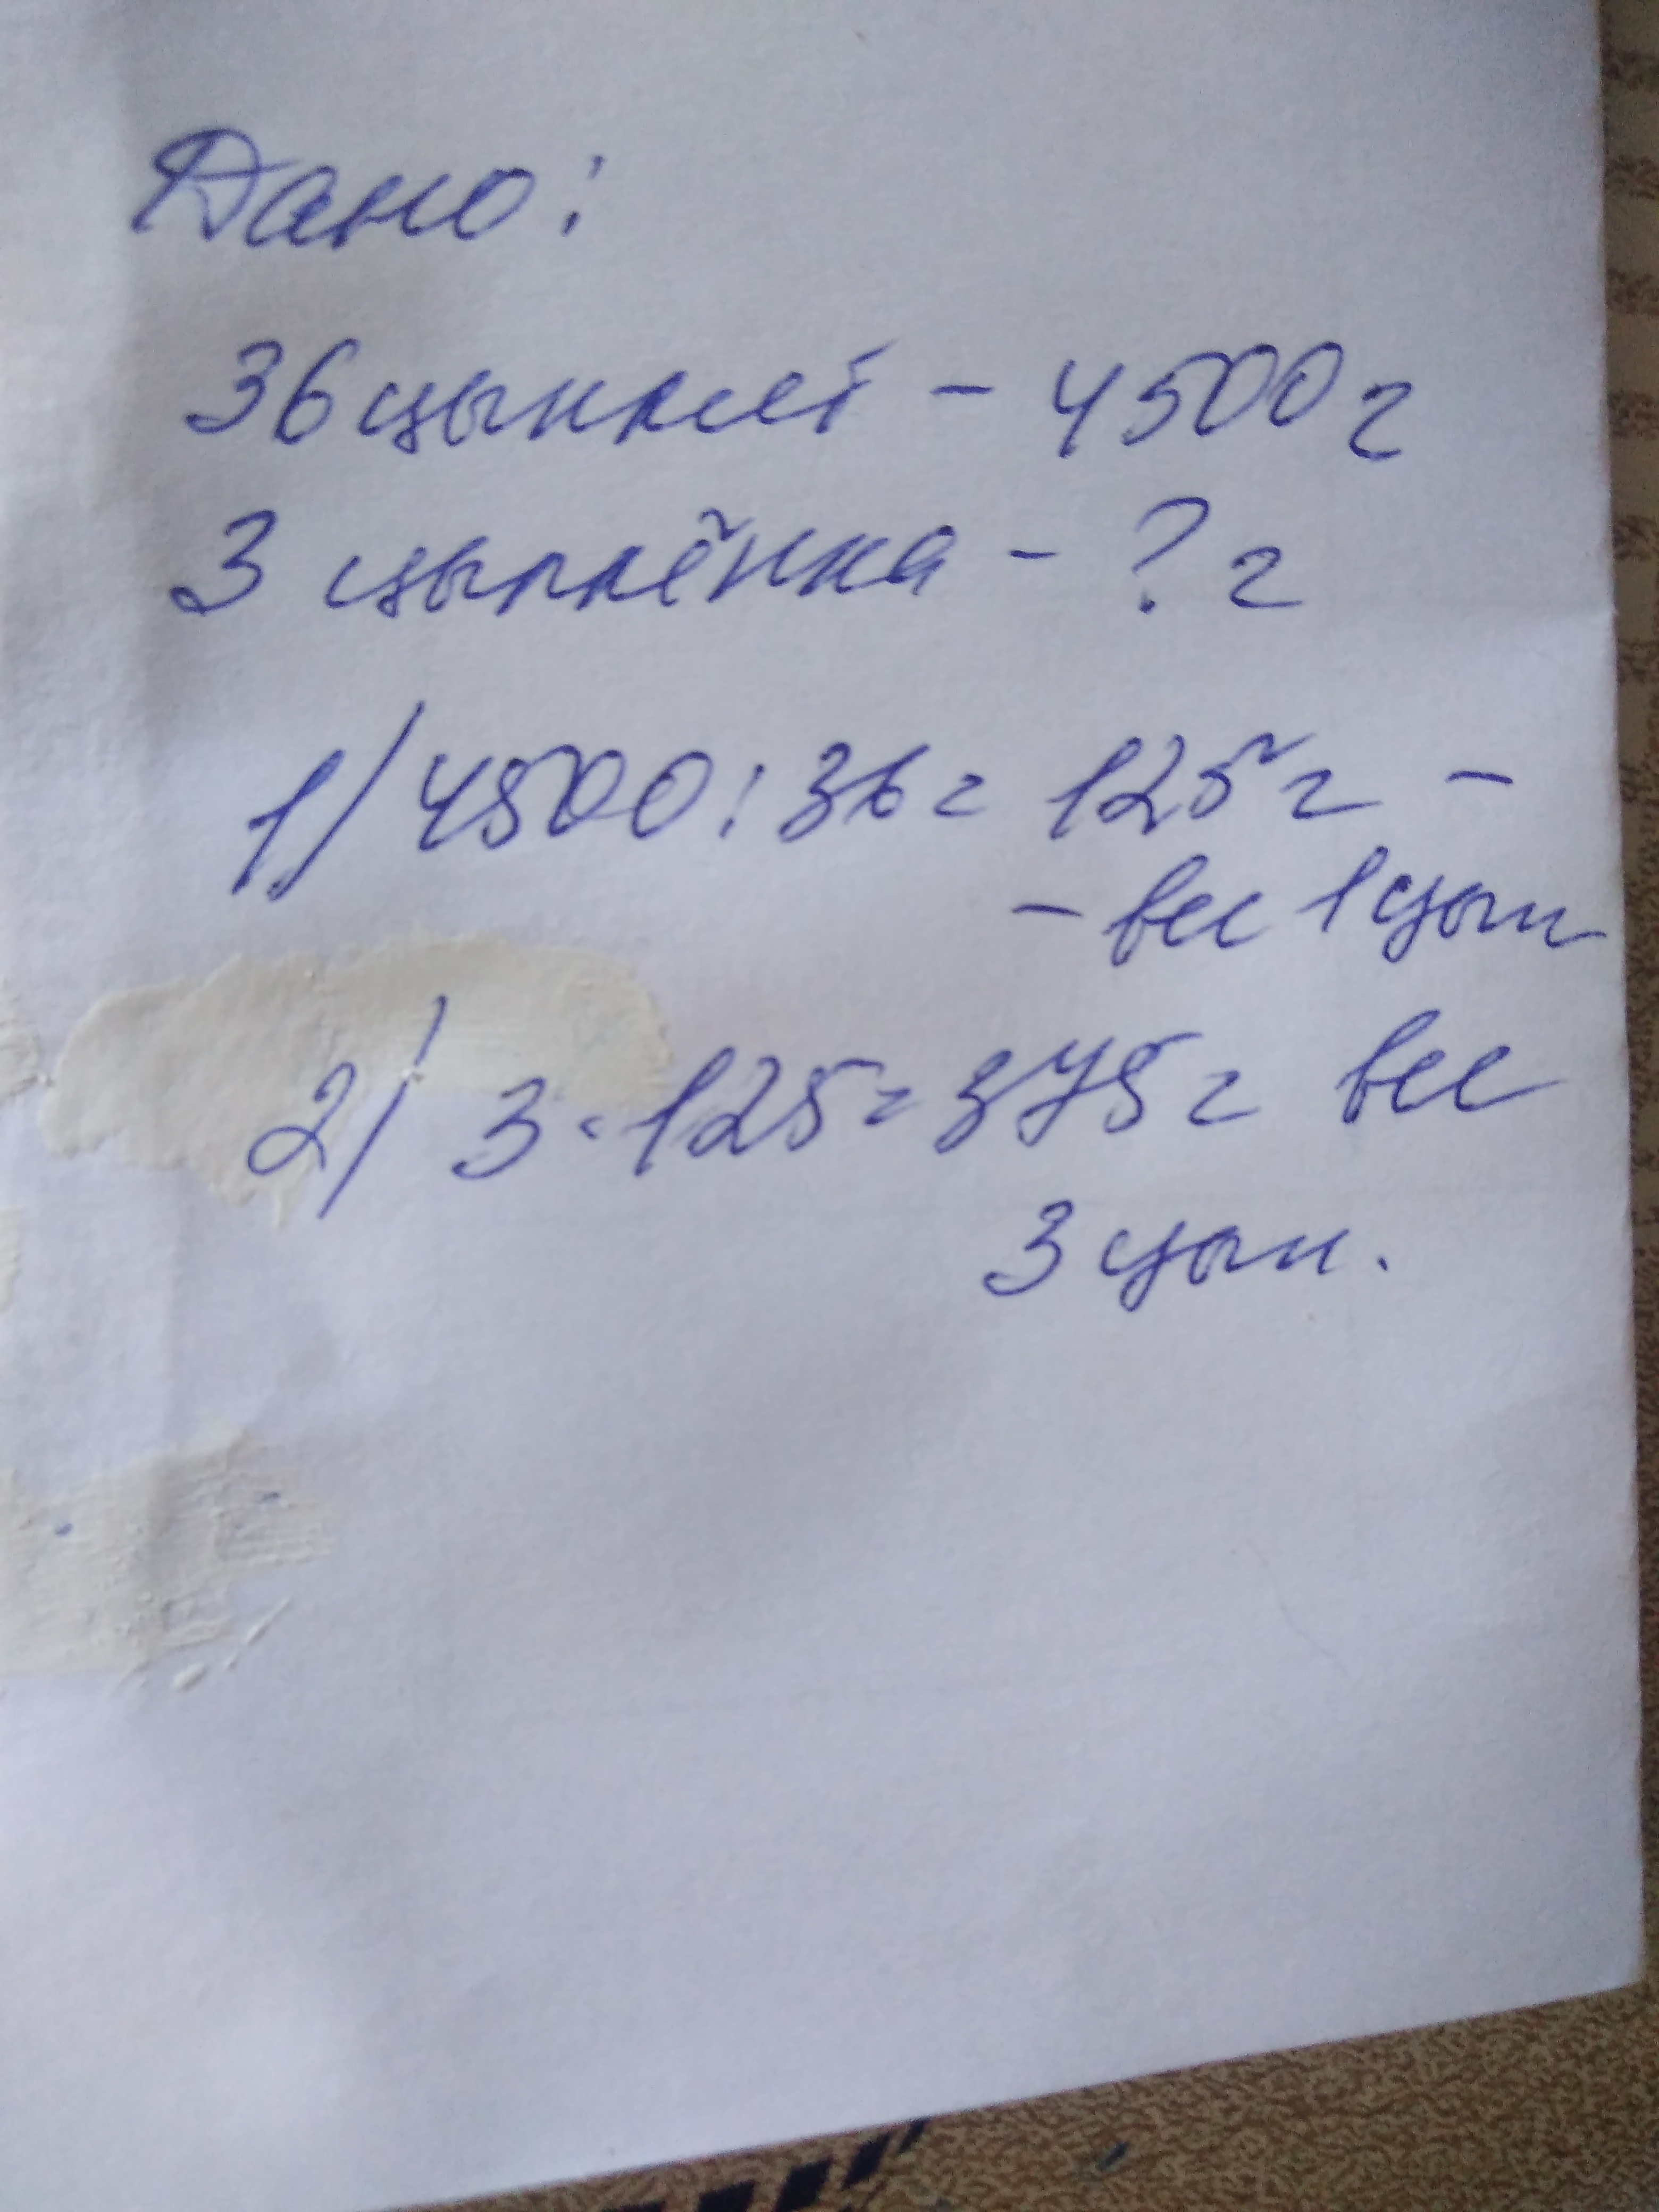 Дано:
36 цыплят - 4500 г
3 цыплёнка - ? г
1) 4500 : 36 = 125 г -
- вес 1 цып
2) 3 · 125 = 375 г вес
3 цып.